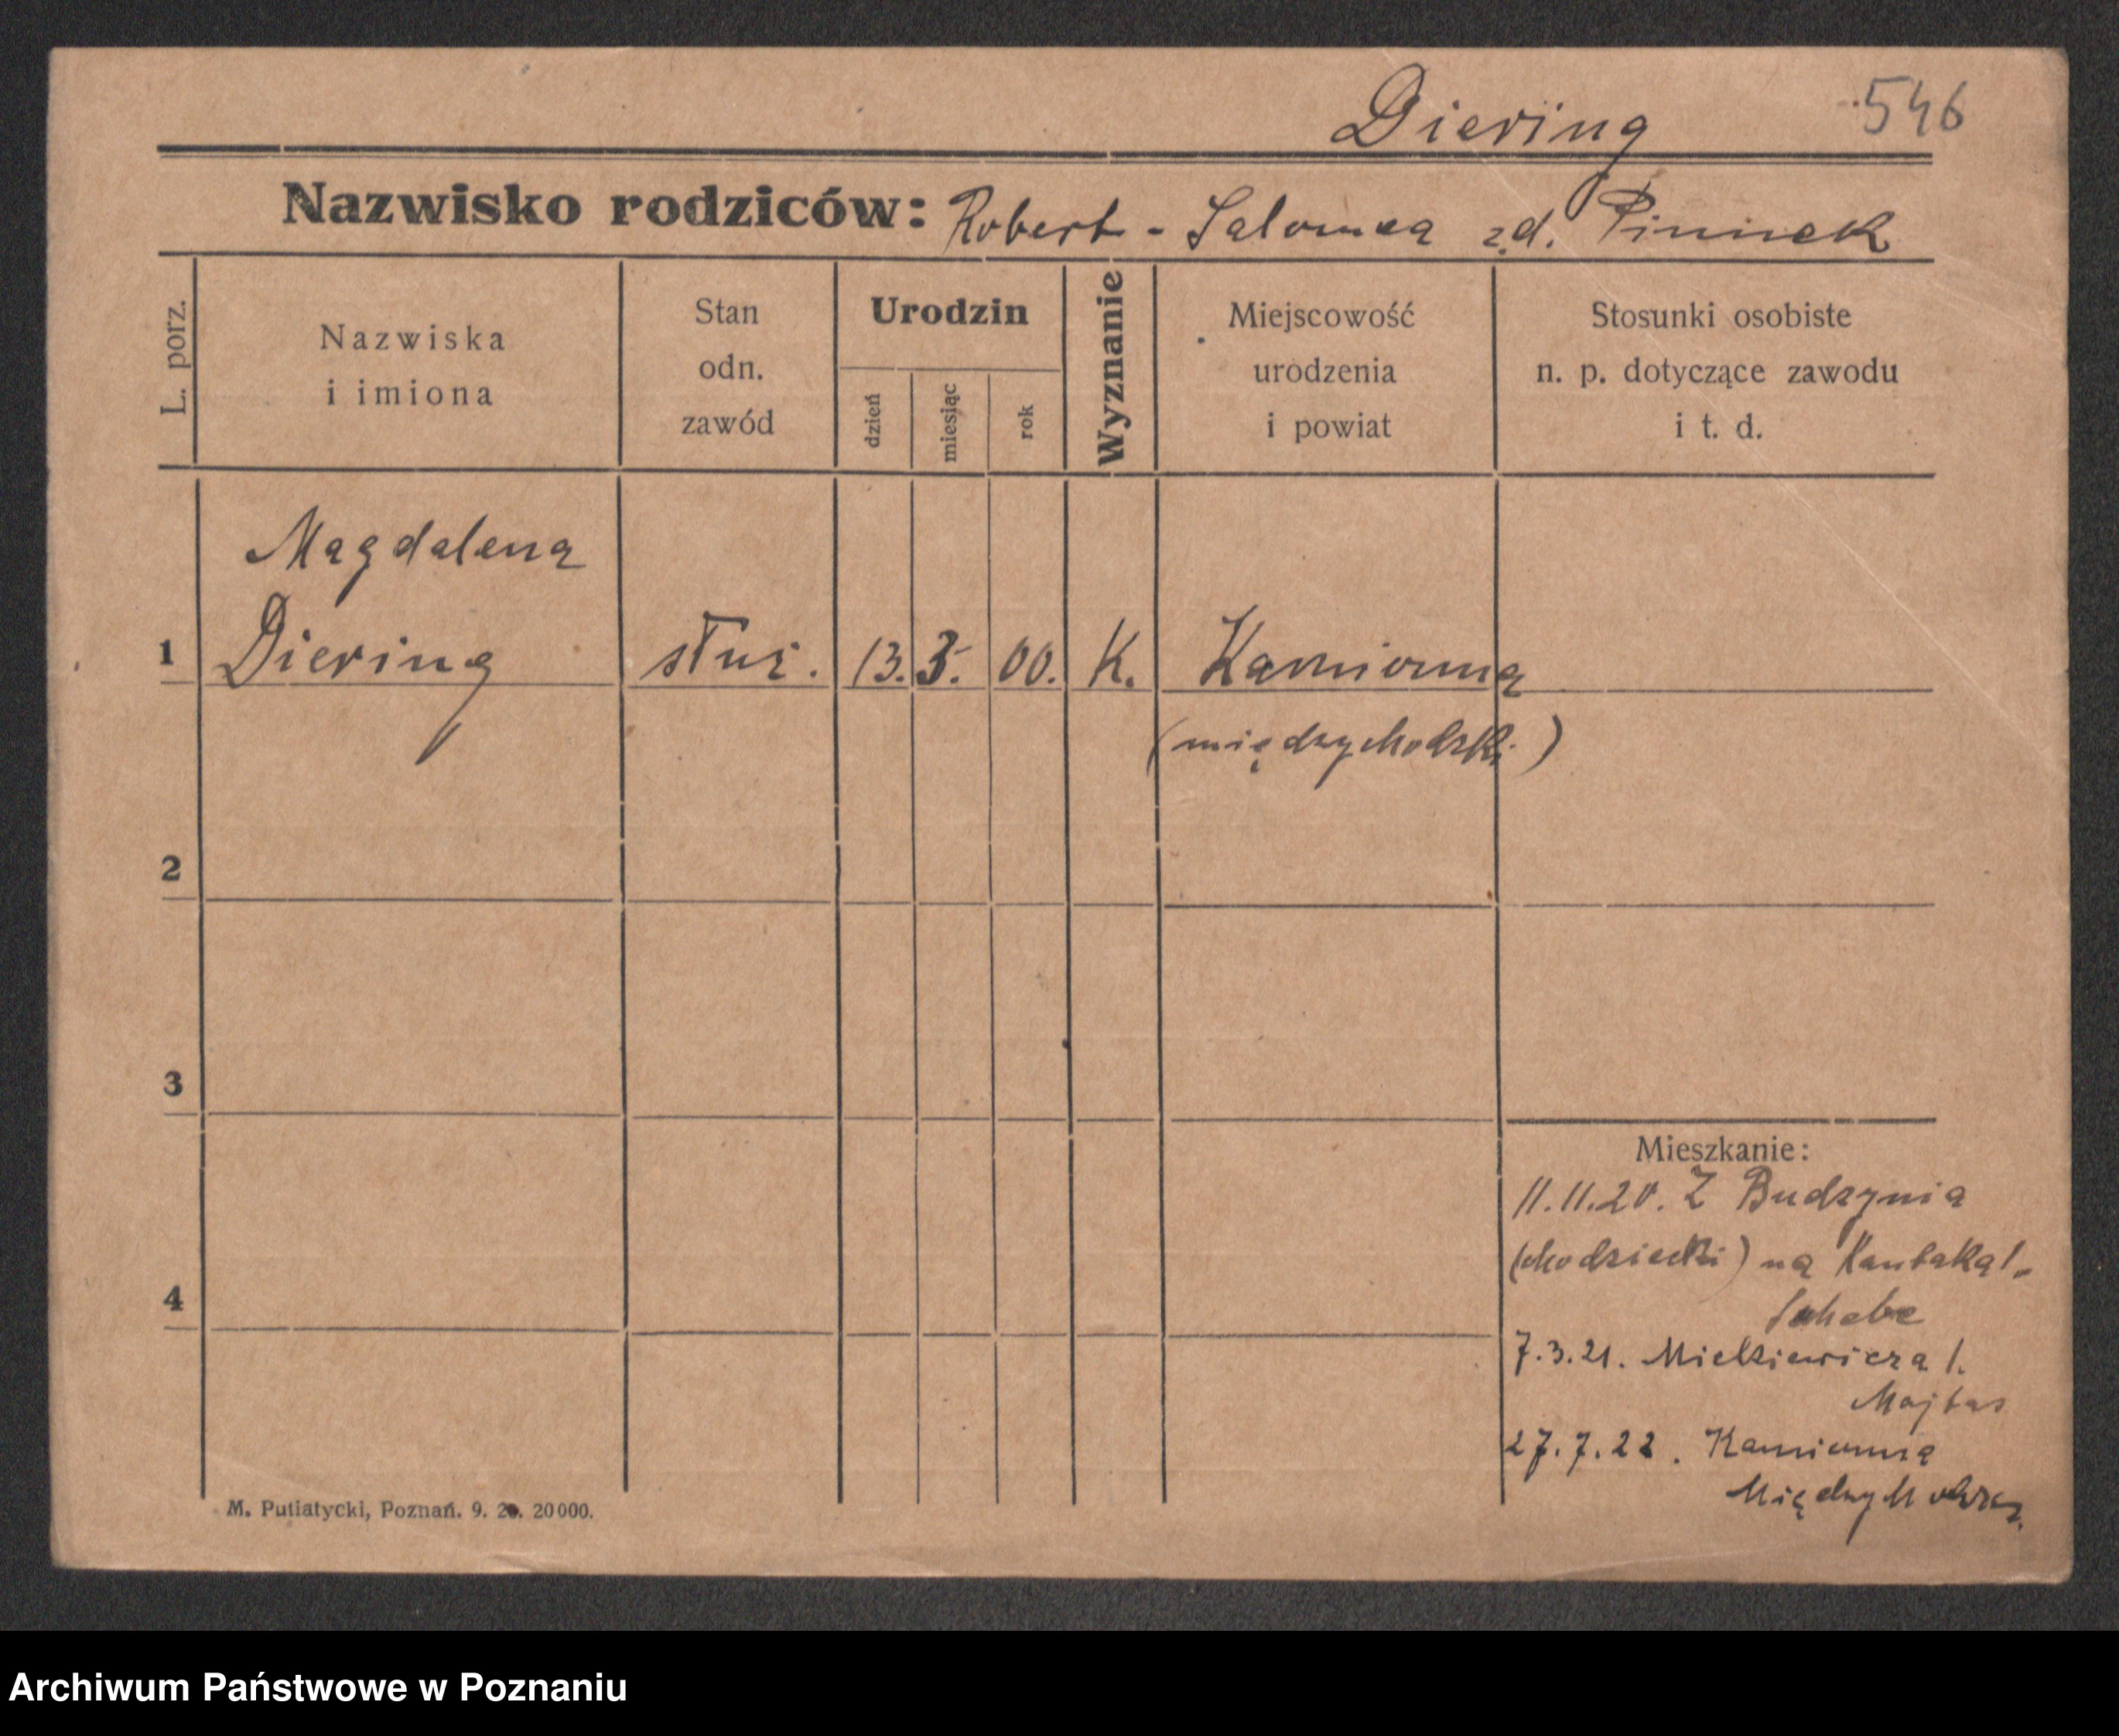 Diering
546
Nazwisko rodziców: Robert - Salomea zd. Pininek
L. porz.
Nazwiska
i imiona
Stan
odn.
zawód
Urodzin
dzień
miesiąc
rok
Wyznanie
Miejscowość
urodzenia
i powiat
Stosunki osobiste
n. p. dotyczące zawodu
i t. d.
Magdalena
1 Diering służ. 13. 3. 00. K. Kamionna
(międzychodzki)
2
3
4
Mieszkanie:
11.11.20. Z Budzynia
(chodzieski) na Kantaka 1.
7.3.21. Mielżiewicza 1.
Majtas
27.7.22. Kamionna
M. Putiatycki, Poznań. 9. 20. 20000.
Archiwum Państwowe w Poznaniu